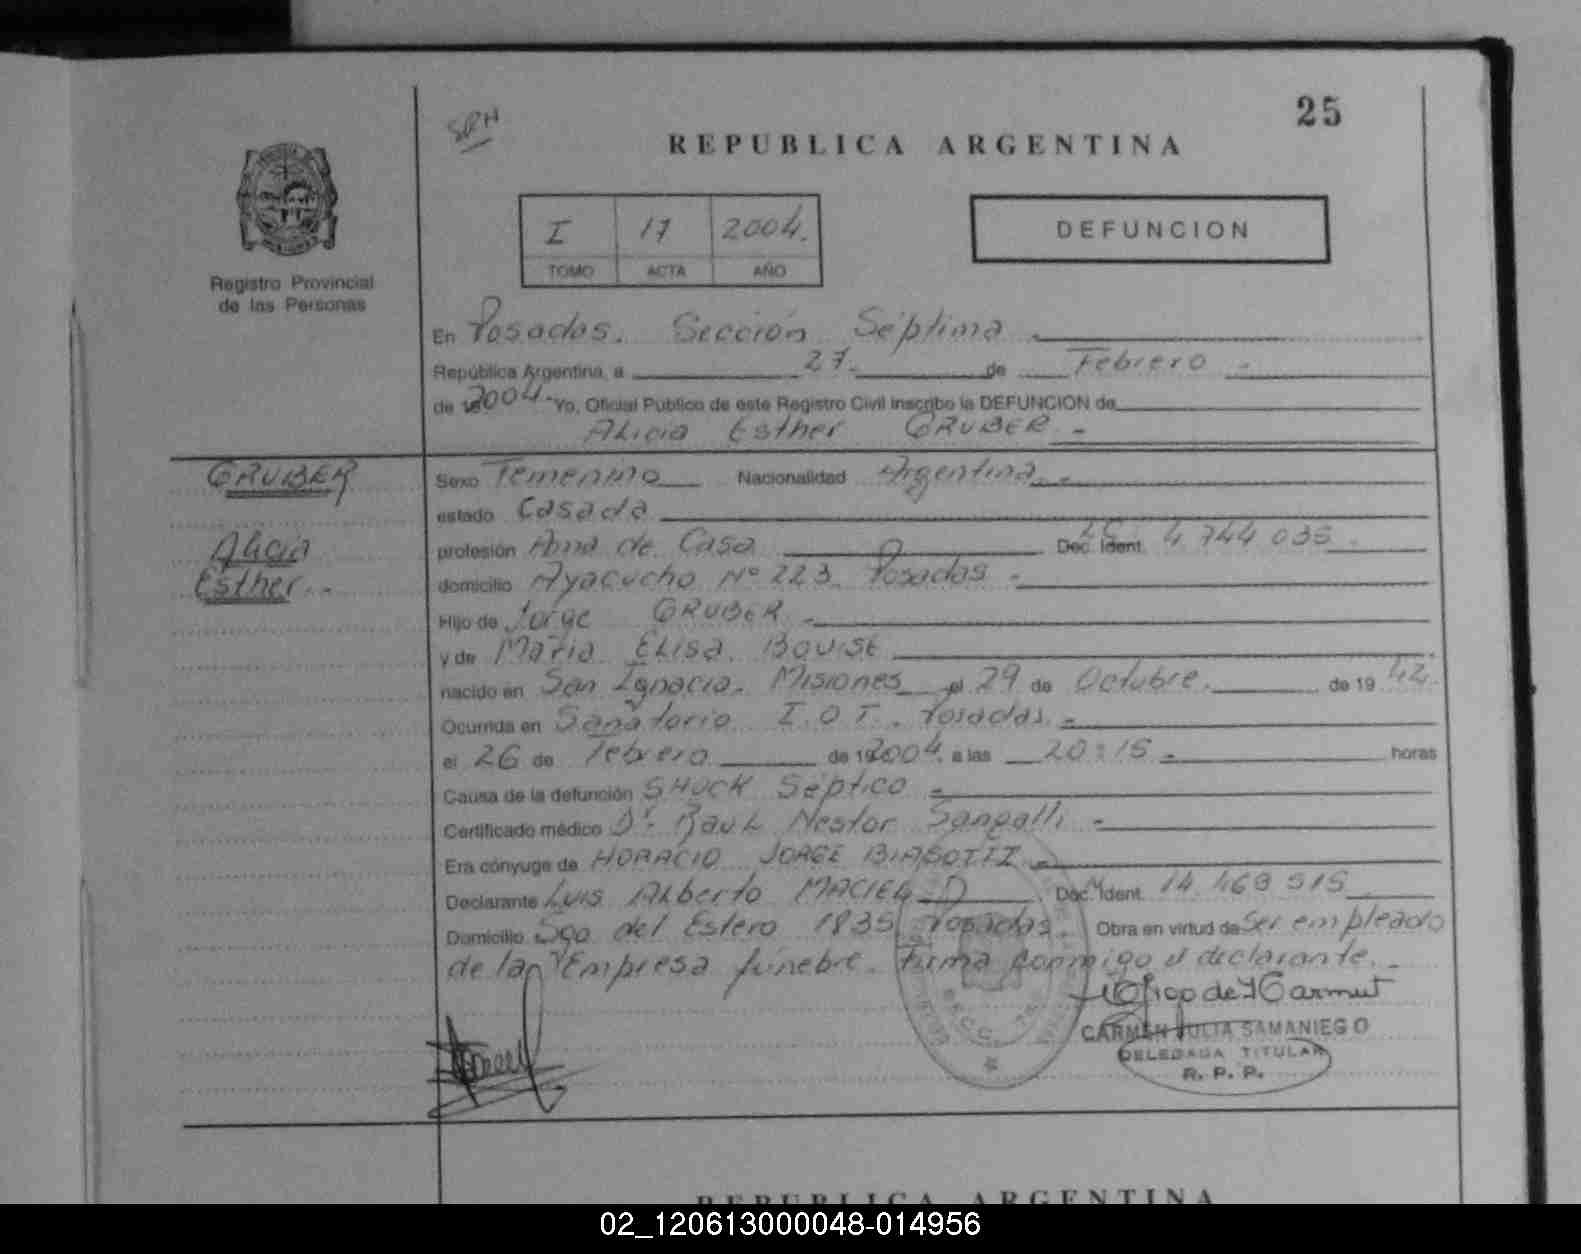 25
REPUBLICA ARGENTINA
Registro Provincial
de las Personas
I 17 2004.
TOMO ACTA AÑO
DEFUNCION
En Posadas. Sección Séptima
República Argentina, a 27 de Febrero
de 2004 Yo, Oficial Público de este Registro Civil inscribo la DEFUNCION de
Alicia Esther GRUBER
GRUBER
Alicia
Esther
Sexo Femenino Nacionalidad Argentina
estado Casada
profesión Ama de Casa Doc. Ident. LC 4 744 035
domicilio Ayacucho Nº 223 Posadas
Hijo de Jorge GRUBER
y de Maria Elisa
nacido en San Ignacio. Misiones el 29 de Octubre de 19 42
Ocurrida en Sanatorio I.O.T. Posadas
el 26 de Febrero de 2004 a las 20:15 horas
Causa de la defunción SHOCK Séptico
Certificado médico Dr. Raul Nestor Sangalli
Era cónyuge de HORACIO JORGE
Declarante Luis Alberto MACIEL D Doc. Ident. 14 469 515
Domicilio Sgo del Estero 1835 Posadas. Obra en virtud de Ser empleado
de la Empresa fúnebre. Firma conmigo el declarante.
CARMEN JULIA SAMANIEGO
DELEGADA TITULAR
R. P. P.
REPUBLICA ARGENTINA
02_120613000048-014956